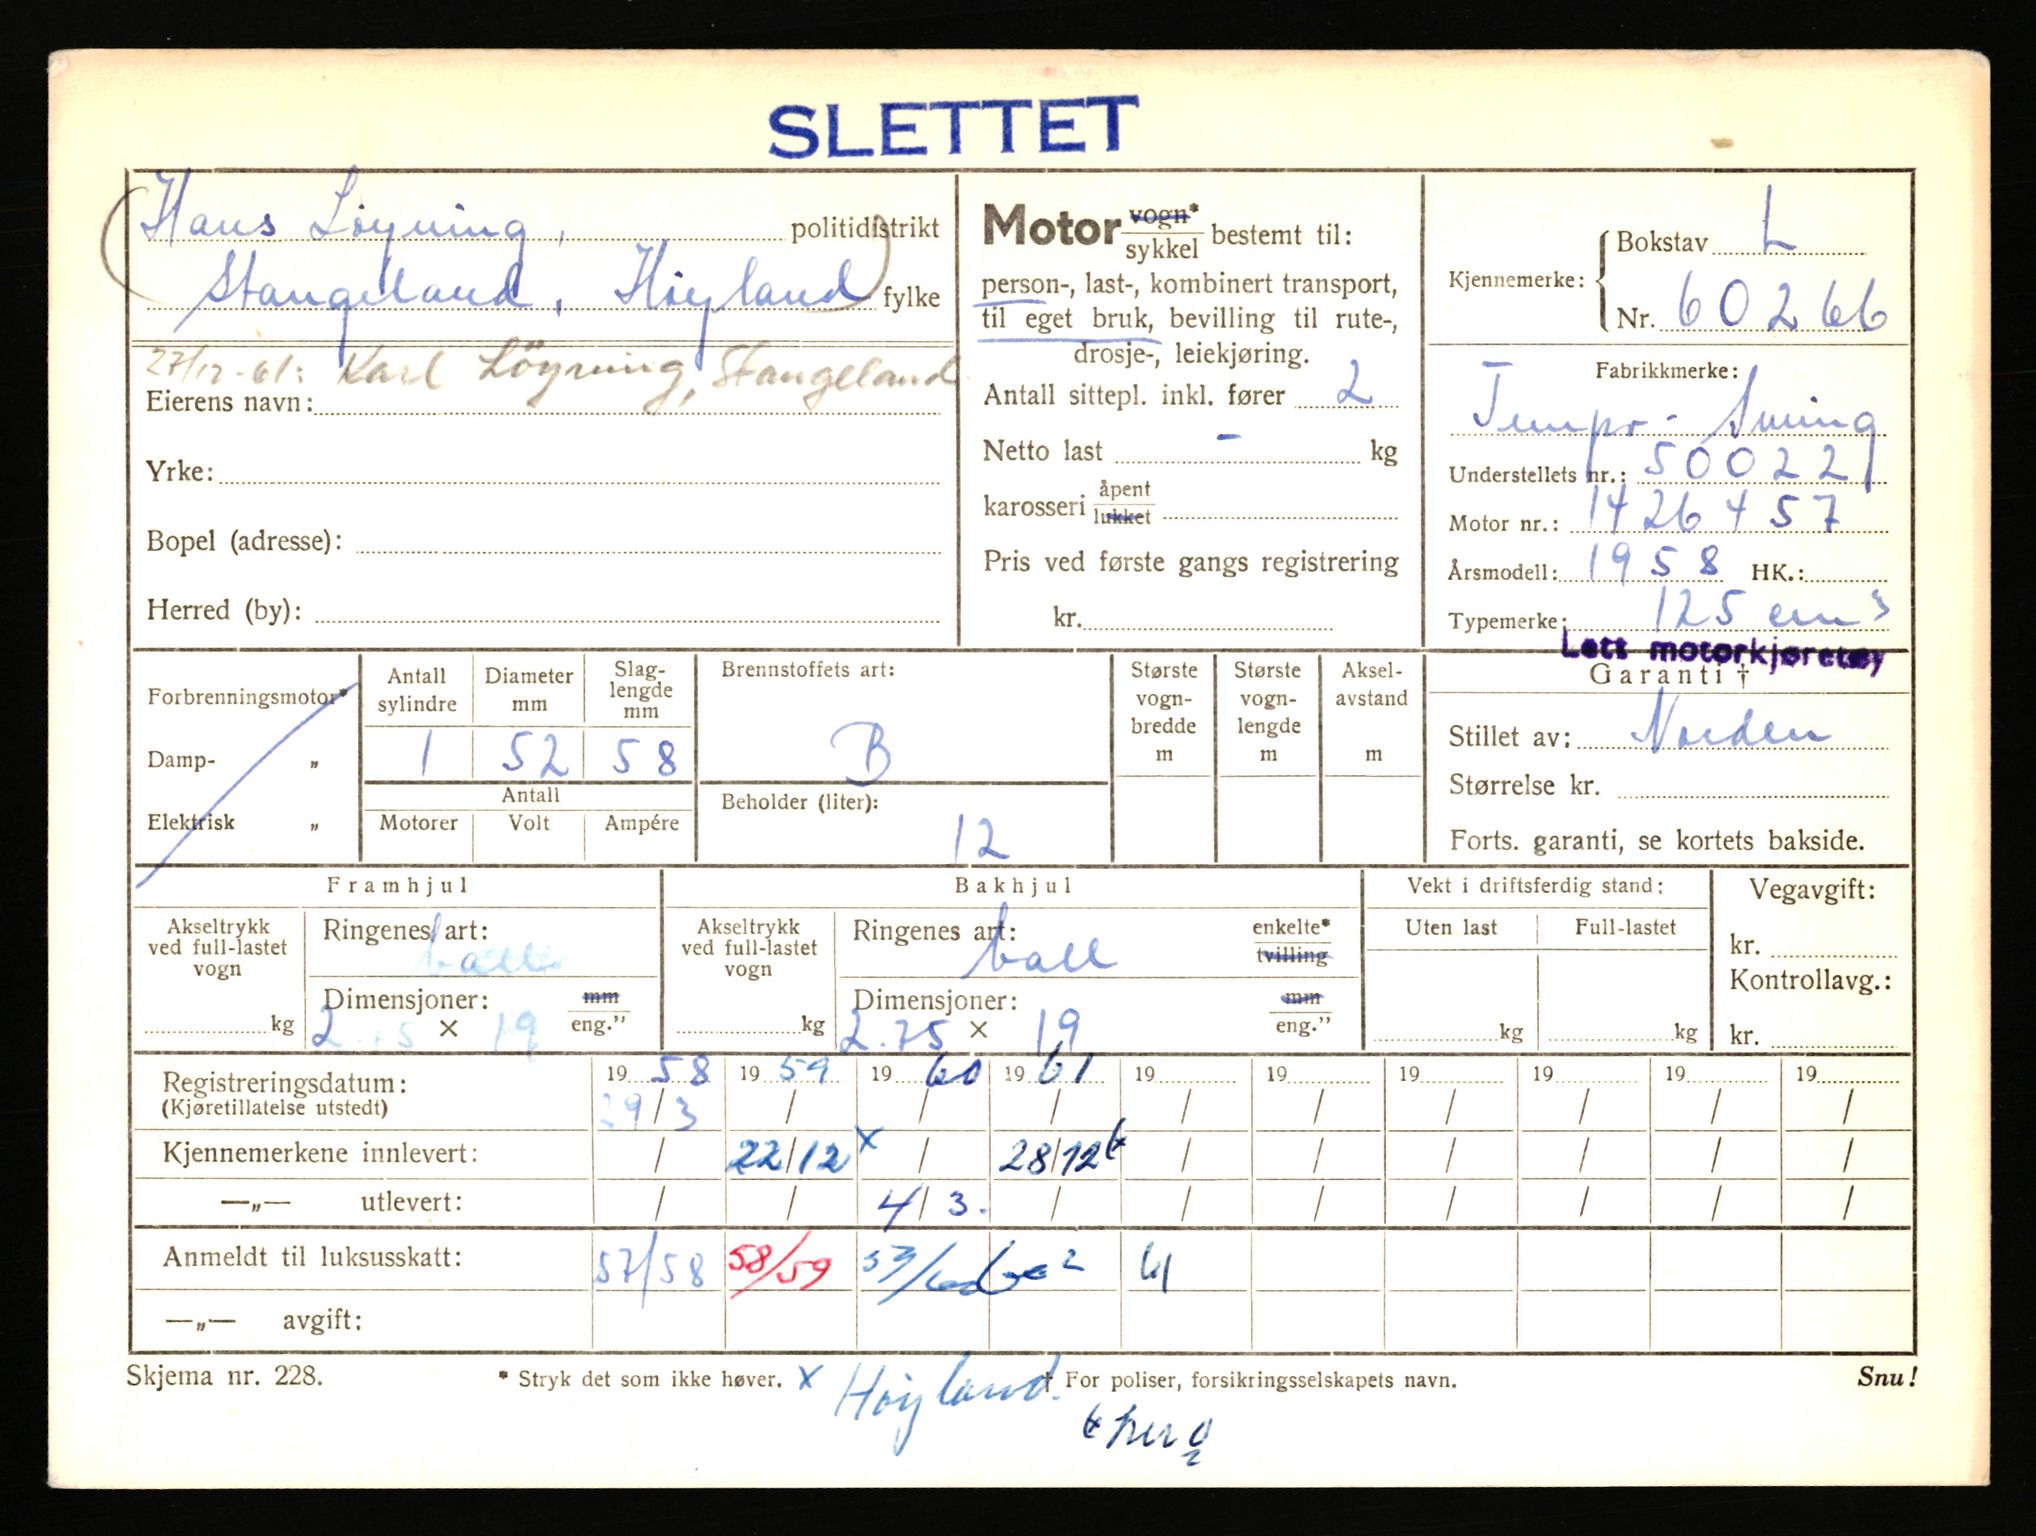 SLETTET
Hans Löyning, politidistrikt
Stangeland, Höyland fylke
27/12-61: Karl Löyning, Stangeland
Eierens navn:
Yrke:
Bopel (adresse):
Herred (by):
Motor vogn* / sykkel bestemt til:
person-, last-, kombinert transport,
til eget bruk, bevilling til rute-,
drosje-, leiekjøring.
Antall sittepl. inkl. fører 2
Netto last - kg
karosseri åpent / lukket
Pris ved første gangs registrering
kr.
Kjennemerke: Bokstav L
Nr. 60266
Fabrikkmerke:
Tempo - Swing
Understellets nr.: 500221
Motor nr.: 1426457
Årsmodell: 1958 HK.:
Typemerke: 125 cm3
Lett motorkjøretøy
Forbrenningsmotor*
Damp- „
Elektrisk „
Antall sylindre Diameter mm Slag-lengde mm
1 52 58
Antall
Motorer Volt Ampére
Brennstoffets art:
B
Beholder (liter):
12
Største vogn-bredde m
Største vogn-lengde m
Aksel-avstand m
Garanti †
Stillet av: Norden
Størrelse kr.
Forts. garanti, se kortets bakside.
Framhjul
Akseltrykk ved full-lastet vogn
kg
Ringenes art:
ball
Dimensjoner: mm / eng.”
2.75 × 19
Bakhjul
Akseltrykk ved full-lastet vogn
kg
Ringenes art: enkelte* / tvilling
ball
Dimensjoner: mm / eng.”
2.75 × 19
Vekt i driftsferdig stand:
Uten last Full-lastet
kg kg
Vegavgift:
kr.
Kontrollavg.:
kr.
Registreringsdatum: 1958 1959 1960 1961 19 19 19 19 19 19
(Kjøretillatelse utstedt) 29/3 / / / / / / / / /
Kjennemerkene innlevert: / 22/12 x / 28/12 / / / / / /
—„— utlevert: / / 4/3. / / / / / / /
Anmeldt til luksusskatt: 57/58 58/59 61
—„— avgift:
Skjema nr. 228. * Stryk det som ikke høver. x Höyland. † For poliser, forsikringsselskapets navn. Snu!